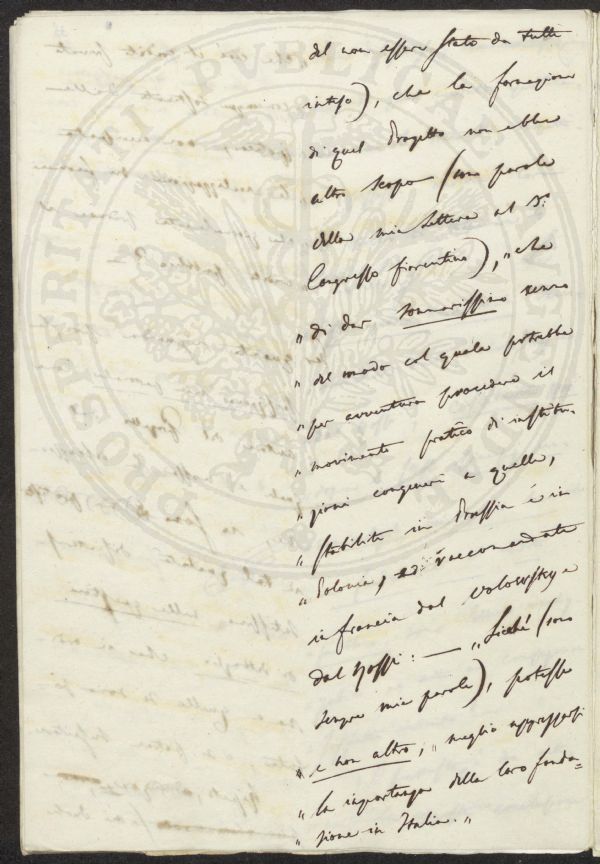 del non essere stato da tutti
inteso), che la formazione
di quel Progetto non ebbe
altro scopo (sono parole
della mia Lettera al 3º
Congresso fiorentino), „ che
„ di dar sommarissimo cenno
„ del modo col quale potrebbe
„ per avventura procedere il
„ movimento pratico di institu-
„ zioni congeneri a quelle,
„ stabilite in Prussia e in
„ Polonia, ed raccomandate
in francia dal Volowsky e
dal Rossi: — „ Sicché (sono
sempre mie parole), potesse
„ e non altro, „ meglio apprezzarsi
„ la importanza della loro fonda-
„ zione in Italia. „
PROSPERITATI PUBLICAE AUGENDAE